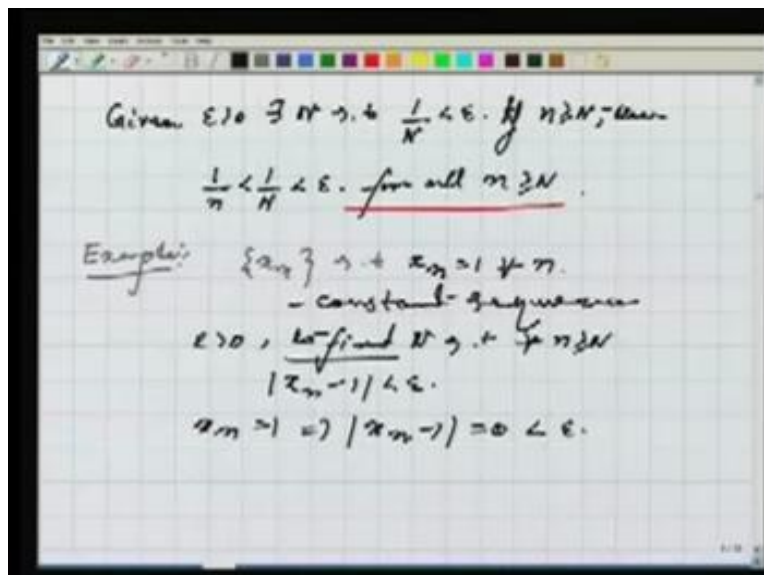 Given ε>0 ∃ N s.t. 1/N < ε. If n≥N, then
1/n < 1/N < ε. for all n ≥ N.
Example: {xₙ} s.t. xₙ = 1 ∀ n.
- constant sequence
ε>0, to find N s.t. ∀ n≥N
|xₙ-1| < ε.
xₙ = 1 => |xₙ-1| = 0 < ε.